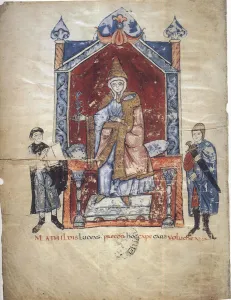 MATHILDIS lucens. precor hoc cape cara volumen